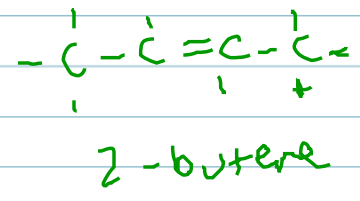 - C - C = C - C -
2-butene